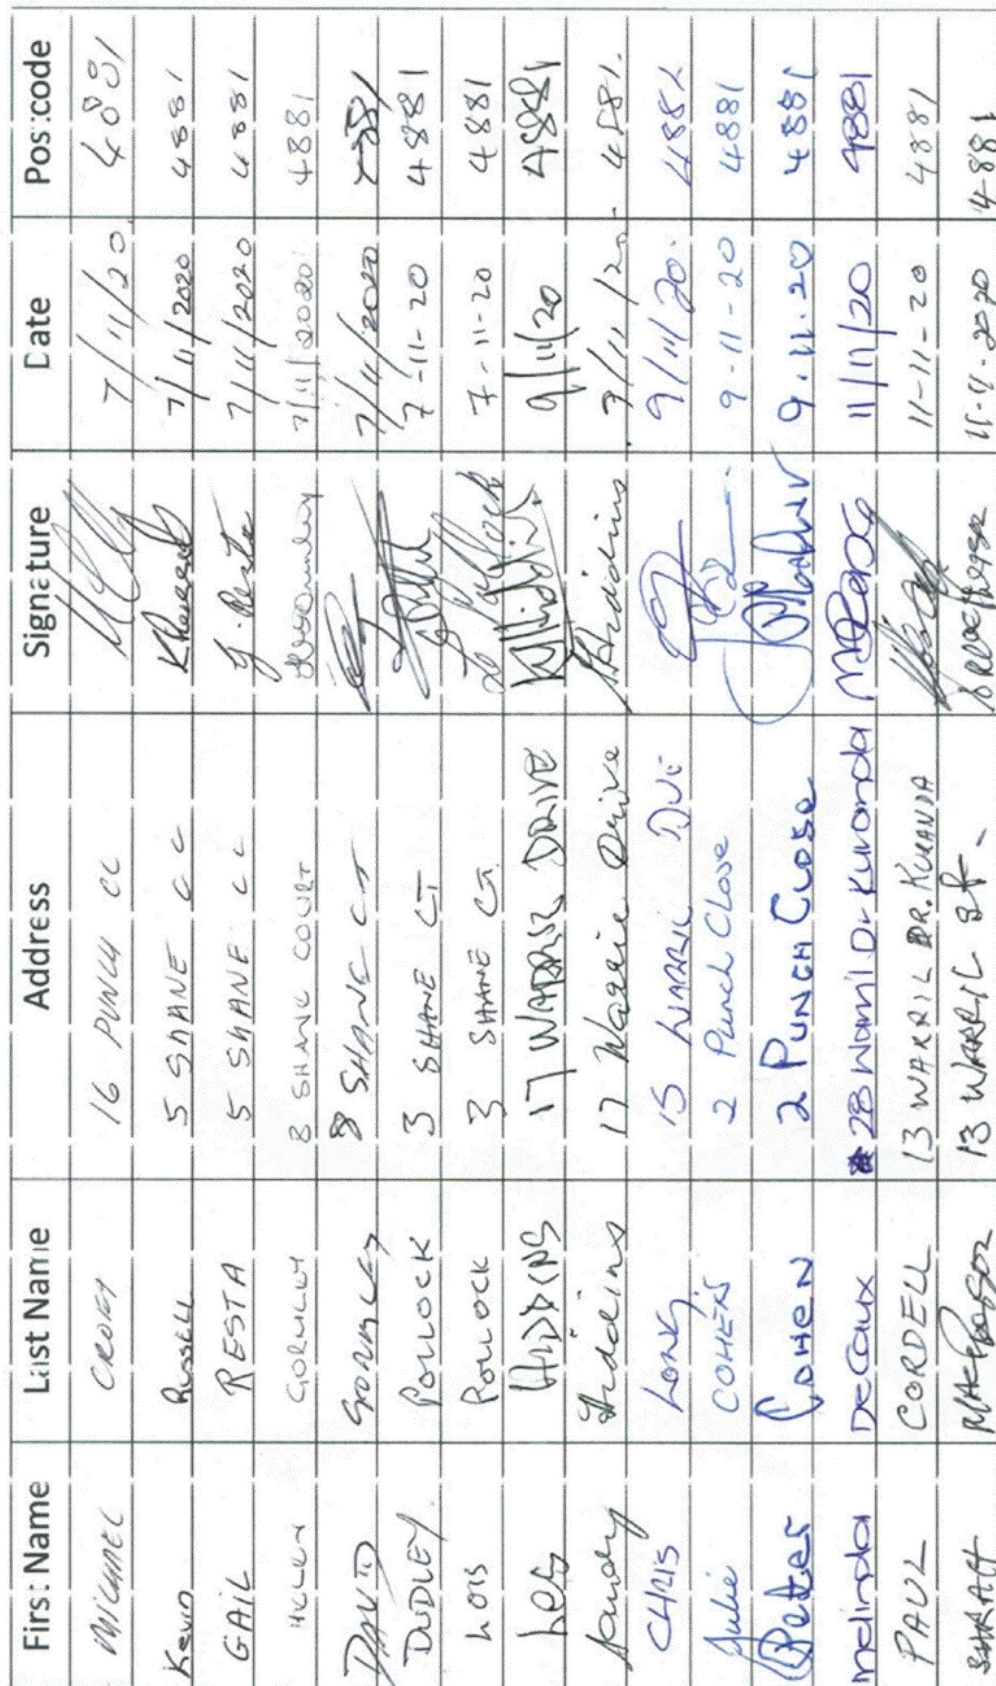 First Name Last Name Address Signature Date Postcode
MICHAEL 16 PUNCH CC 7/11/20 4881
Kevin Russell 5 SHANE CC 7/11/2020 4881
GAIL RESTA 5 SHANE CC G. Resta 7/11/2020 4881
GORMLEY 8 SHANE COURT 7/11/2020 4881
DAVID GORMLEY 8 SHANE CT 7/11/2020 4881
DUDLEY. POLLOCK 3 SHANE CT 7-11-20 4881
LOIS POLLOCK 3 SHANE CT. 7-11-20 4881
Les HIDDINS 17 WARRIL DRIVE 9/11/20 4881
Hiddins 17 Drive Hiddins 4881.
CHRIS LONG 15 WARRIL 9/11/20. 4881
Julie COHEN 2 Punch Close 9-11-20 4881
Peter COHEN 2 PUNCH CLOSE 9.11.20 4881
melinda Decaux 28 Warril Dr Kuranda 11/11/20 4881
PAUL CORDELL 13 WARRIL DR. KURANDA 11-11-20 4881
13 WARRIL 11-11-2020 4881